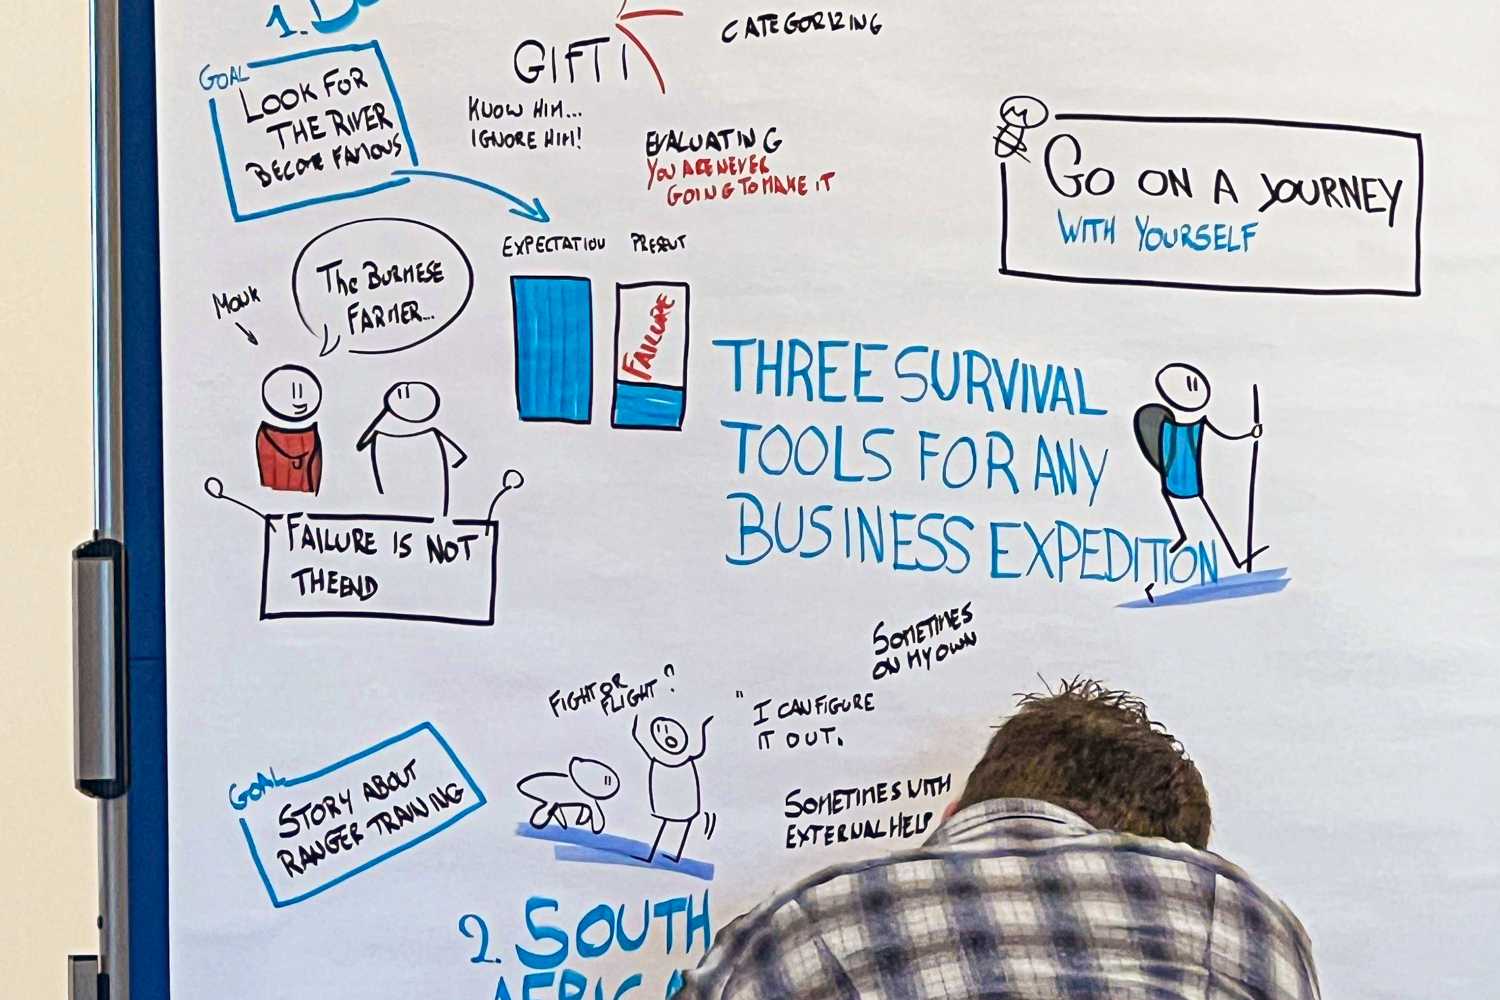 1.
GOAL
LOOK FOR
THE RIVER
BECOME FAMOUS
GIFT!
KNOW HIM...
IGNORE HIM!
CATEGORIZING
EVALUATING
YOU ARE NEVER
GOING TO MAKE IT
GO ON A JOURNEY
WITH YOURSELF
EXPECTATION
PRESENT
FAILURE
MONK
The BURMESE
FARMER...
FAILURE IS NOT
THE END
THREE SURVIVAL
TOOLS FOR ANY
BUSINESS EXPEDITION
SOMETIMES
ON MY OWN
FIGHT OR
FLIGHT?
"I CAN FIGURE
IT OUT.
SOMETIMES WITH
EXTERNAL HELP
GOAL
STORY ABOUT
RANGER TRAINING
2. SOUTH
AFRICA